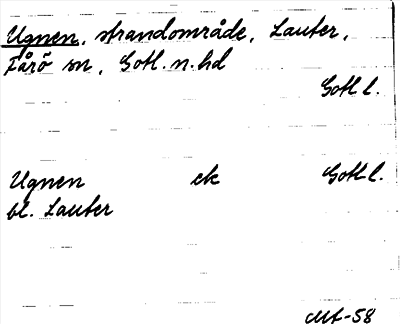 Ugnen, strandområde, Lauter,
Fårö sn, Gotl. n. hd
Gotl l.
Ugnen ek Gotl l.
bl. Lauter
-58